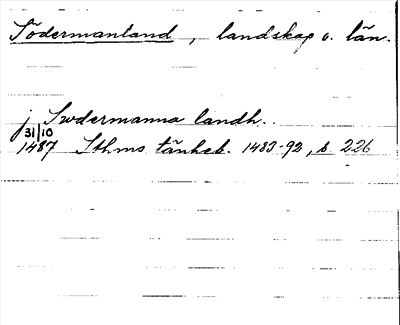 Södermanland, landskap o. län.
j Swdermanna landh.
31/10
1487 Sthms tänkeb. 1483-92, s. 226